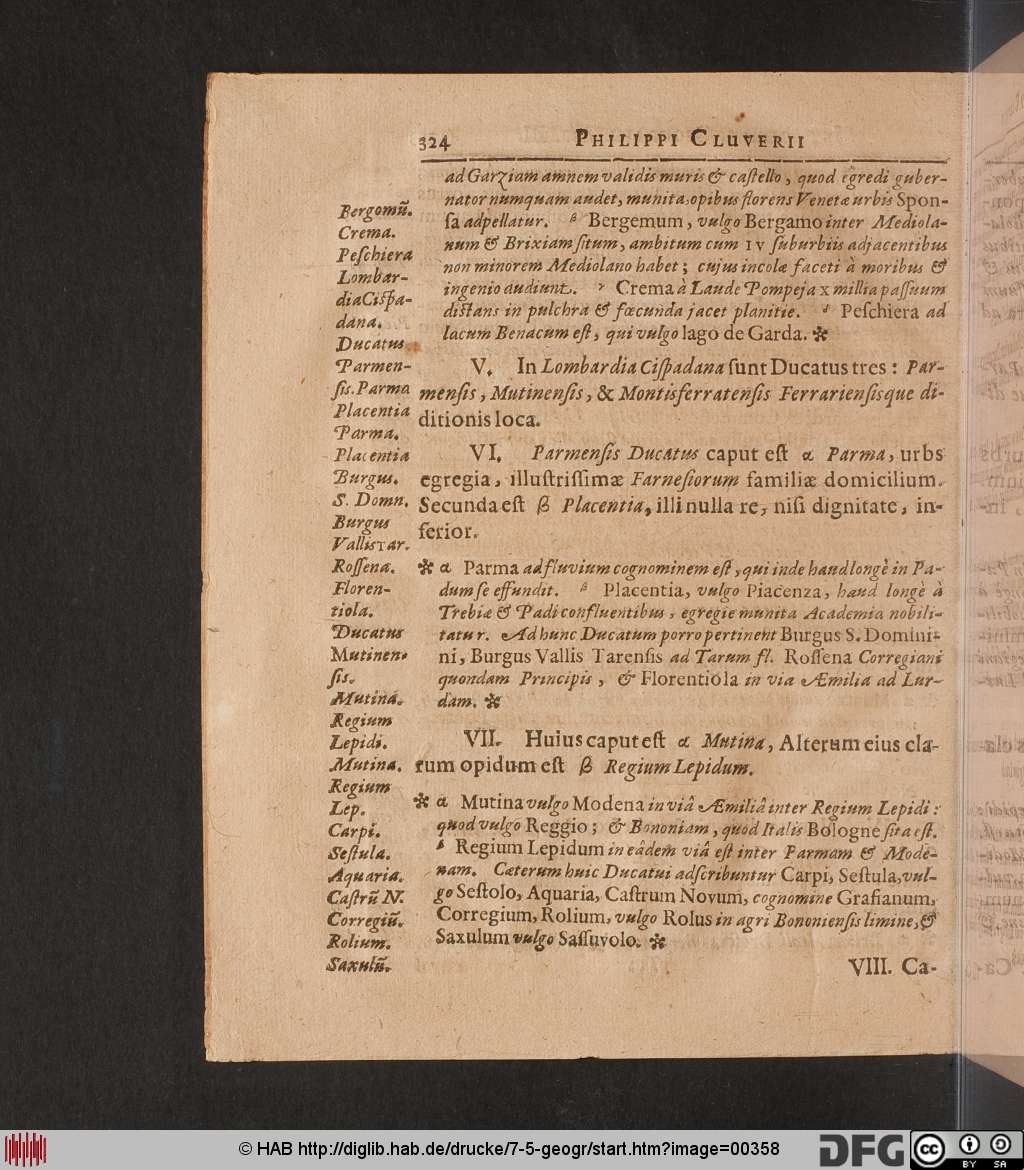 324
PHILIPPI CLUVERII
ad Garziam amnem validis muris & caſtello, quod egredi guber-
nator numquam audet, munita, opibus florens Venetæ urbis Spon-
ſa adpellatur. β Bergemum, vulgo Bergamo inter Mediola-
num & Brixiam ſitum, ambitum cum IV ſuburbiis adjacentibus
non minorem Mediolano habet; cujus incolæ faceti à moribus &
ingenio audiunt. γ Crema à Laude Pompeja X millia paſſuum
diſtans in pulchra & fœcunda jacet planitie. δ Peſchiera ad
lacum Benacum eſt, qui vulgo lago de Garda. ✻
V. In Lombardia Ciſpadana ſunt Ducatus tres: Par-
menſis, Mutinenſis, & Montisferratenſis Ferrarienſisque di-
ditionis loca.
VI. Parmenſis Ducatus caput eſt α Parma, urbs
egregia, illuſtriſſimæ Farneſiorum familiæ domicilium.
Secunda eſt β Placentia, illi nulla re, niſi dignitate, in-
ferior.
✻ α Parma ad fluvium cognominem eſt, qui inde haud longè in Pa-
dum ſe effundit. β Placentia, vulgo Piacenza, haud longè à
Trebiæ & Padi confluentibus, egregie munita Academia nobili-
tatur. Ad hunc Ducatum porro pertinent Burgus S. Domini-
ni, Burgus Vallis Tarenſis ad Tarum fl. Roſſena Corregiani
quondam Principis, & Florentiola in via Æmilia ad Lur-
dam. ✻
VII. Huius caput eſt α Mutina, Alterum eius cla-
rum opidum eſt β Regium Lepidum.
✻ α Mutina vulgo Modena in viâ Æmiliâ inter Regium Lepidi:
quod vulgo Reggio; & Bononiam, quod Italis Bologne ſita eſt.
β Regium Lepidum in eâdem viâ eſt inter Parmam & Mode-
nam. Cæterum huic Ducatui adſcribuntur Carpi, Seſtula, vul-
go Seſtolo, Aquaria, Caſtrum Novum, cognomine Grafianum,
Corregium, Rolium, vulgo Rolus in agri Bononienſis limine, &
Saxulum vulgo Saſſuvolo. ✻
VIII. Ca-
Bergomũ.
Crema.
Peſchiera
Lombar-
dia Ciſpa-
dana.
Ducatus
Parmen-
ſis. Parma
Placentia
Parma.
Placentia
Burgus.
S. Domn.
Burgus
Vallis Tar.
Roſſena.
Floren-
tiola.
Ducatus
Mutinen-
ſis.
Mutina.
Regium
Lepidi.
Mutina.
Regium
Lep.
Carpi.
Seſtula.
Aquaria.
Caſtrũ N.
Corregiũ.
Rolium.
Saxulũ.
© HAB http://diglib.hab.de/drucke/7-5-geogr/start.htm?image=00358
DFG
cc
BY SA